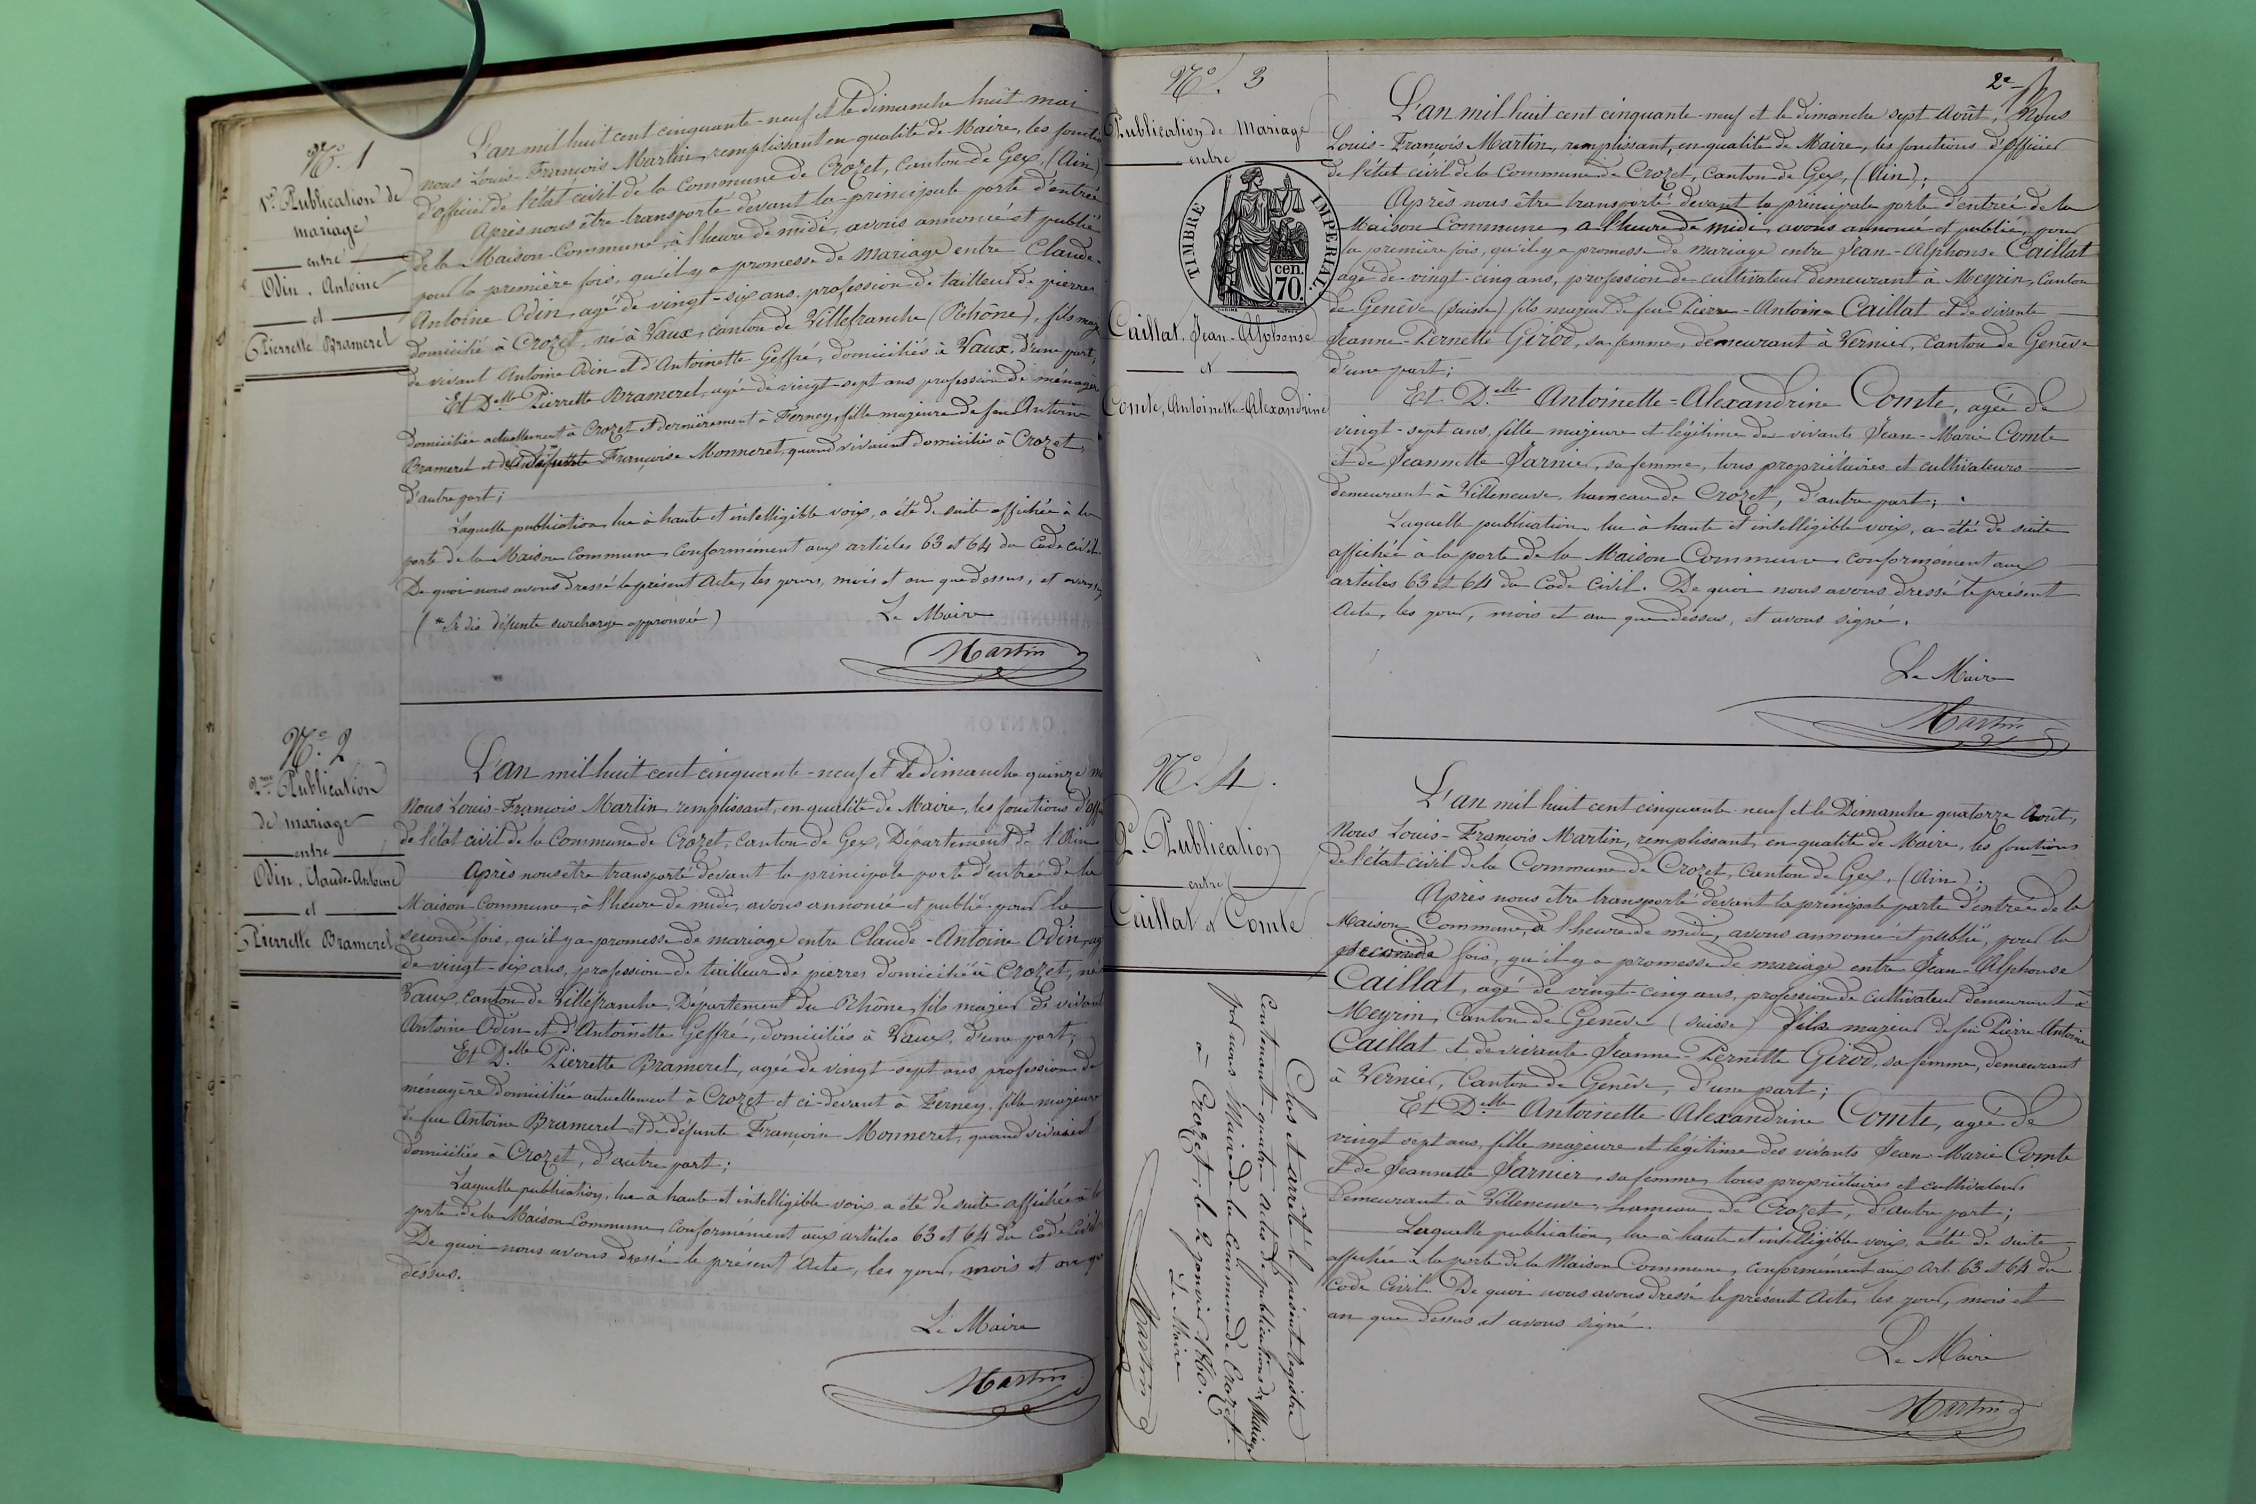 N.º 1
1.re Publication de
mariage
entre
Odin, Antoine
et
Pierrette Bramerel
L'an mil huit cent cinquante-neuf et le dimanche huit mai
nous Louis-François Martin, remplissant en qualité de Maire, les fonctions
d'officier de l'état civil de la Commune de Crozet, Canton de Gex, (Ain)
Après nous être transporté devant la principale porte d'entrée
de la Maison-Commune, à l'heure de midi, avons annoncé et publié
pour la première fois, qu'il y a promesse de mariage entre Claude-
Antoine Odin, agé de vingt-six ans, profession de tailleur de pierres
domicilié à Crozet, né à Vaux, canton de Villefranche (Rhône), fils maj
de vivant Antoine Odin et d'Antoinette Geffré, domiciliés à Vaux, d'une part,
Et D.elle Pierrette Bramerel, agée de vingt-sept ans profession de ménagère
domiciliée actuellement à Crozet et dernièrement à Ferney, fille majeure de feu Antoine
Bramerel et de Françoise Monneret, quand vivaient domiciliés à Crozet,
d'autre part;
Laquelle publication, lue à haute et intelligible voix, a été de suite affichée à la
porte de la Maison Commune, conformément aux articles 63 et 64 du Code civil.
De quoi nous avons dressé le présent Acte, les jours, mois et an que dessus, et avons
(* Je dis défunte surcharge approuvée)
Le Maire
Martin
N.º 2
2.me Publication
de mariage
entre
Odin, Claude-Antoine
et
Pierrette Bramerel
L'an mil huit cent cinquante-neuf et le dimanche quinze m
Nous Louis-François Martin remplissant, en qualité de Maire, les fonctions d'off
de l'état civil de la Commune de Crozet, canton de Gex, Département de l'Ain
Après nous être transporté devant la principale porte d'entrée de la
Maison Commune, à l'heure de midi, avons annoncé et publié pour la
seconde fois, qu'il y a promesse de mariage entre Claude-Antoine Odin, ag
de vingt-six ans, profession de tailleur de pierres domicilié à Crozet, né
Vaux, canton de Villefranche, Département du Rhône, fils majeur de vivant
Antoine Odin et d'Antoinette Geffré, domiciliés à Vaux, d'une part;
Et D.elle Pierrette Bramerel, agée de vingt-sept ans profession de
ménagère domiciliée actuellement à Crozet et ci-devant à Ferney, fille majeure
de feu Antoine Bramerel et de défunte Françoise Monneret, quand vivaient
domiciliés à Crozet, d'autre part;
Laquelle publication, lue à haute et intelligible voix, a été de suite affichée à la
porte de la Maison Commune, conformément aux articles 63 et 64 du Code Civil
De quoi nous avons dressé le présent Acte, les jour, mois et an que
dessus.
Le Maire
Martin
2e
N.º 3
Publication de Mariage
entre
TIMBRE IMPERIAL
70 cen.
Caillat, Jean-Alphonse
et
Comte, Antoinette-Alexandrine
L'an mil huit cent cinquante-neuf et le dimanche sept Août, Nous
Louis-François Martin, remplissant, en qualité de Maire, les fonctions d'officier
de l'état civil de la Commune de Crozet, canton de Gex, (Ain);
Après nous être transporté devant la principale porte d'entrée de la
Maison Commune, a l'heure de midi, avons annoncé et publié, pour
la première fois, qu'il y a promesse de mariage entre Jean-Alphonse Caillat
agé de vingt-cinq ans, profession de cultivateur demeurant à Meyrin, Canton
de Genève (Suisse) fils majeur de feu Pierre-Antoine Caillat et de vivante
Jeanne-Pernette Girod, sa femme, demeurant à Vernier, Canton de Genève
d'une part;
Et D.elle Antoinette-Alexandrine Comte, agée de
vingt-sept ans, fille majeure et légitime des vivants Jean-Marie Comte
et de Jeannette Jarnier, sa femme, tous propriétaires et cultivateurs
demeurant à Villeneuve, hameau de Crozet, d'autre part;
Laquelle publication lue à haute et intelligible voix, a été de suite
affichée à la porte de la Maison Commune, conformément aux
articles 63 et 64 du Code Civil. De quoi nous avons dressé le présent
Acte, les jour, mois et an que dessus, et avons signé.
Le Maire
Martin
N.º 4.
2.e Publication
entre
Caillat et Comte
L'an mil huit cent cinquante-neuf et le Dimanche quatorze Août,
Nous Louis-François Martin, remplissant, en qualité de Maire, les fonctions
de l'état civil de la Commune de Crozet, Canton de Gex, (Ain);
Après nous être transporté devant la principale porte d'entrée de la
Maison Commune, à l'heure de midi, avons annoncé et publié, pour la
seconde fois, qu'il y a promesse de mariage entre Jean-Alphonse
Caillat, agé de vingt-cinq ans, profession de Cultivateur demeurant à
Meyrin, Canton de Genève (Suisse) fils majeur de feu Pierre-Antoine
Caillat et de vivante Jeanne-Pernette Girod, sa femme, demeurant
à Vernier, Canton de Genève, d'une part;
Et D.elle Antoinette-Alexandrine Comte, agée de
vingt-sept ans, fille majeure et légitime des vivants Jean-Marie Comte
et de Jeannette Jarnier, sa femme, tous propriétaires et cultivateurs
demeurant à Villeneuve, hameau de Crozet, d'autre part;
Laquelle publication, lue à haute et intelligible voix, a été de suite
affichée à la porte de la Maison Commune, conformément aux art. 63 et 64 du
Code Civil. De quoi nous avons dressé le présent Acte les jour, mois et
an que dessus et avons signé.
Le Maire
Martin
Clos et arrêté le présent registre
contenant quatre actes de publications de Mariage
par nous Maire de la Commune de Crozet.
à Crozet, le 2 janvier 1860.
Le Maire
Martin